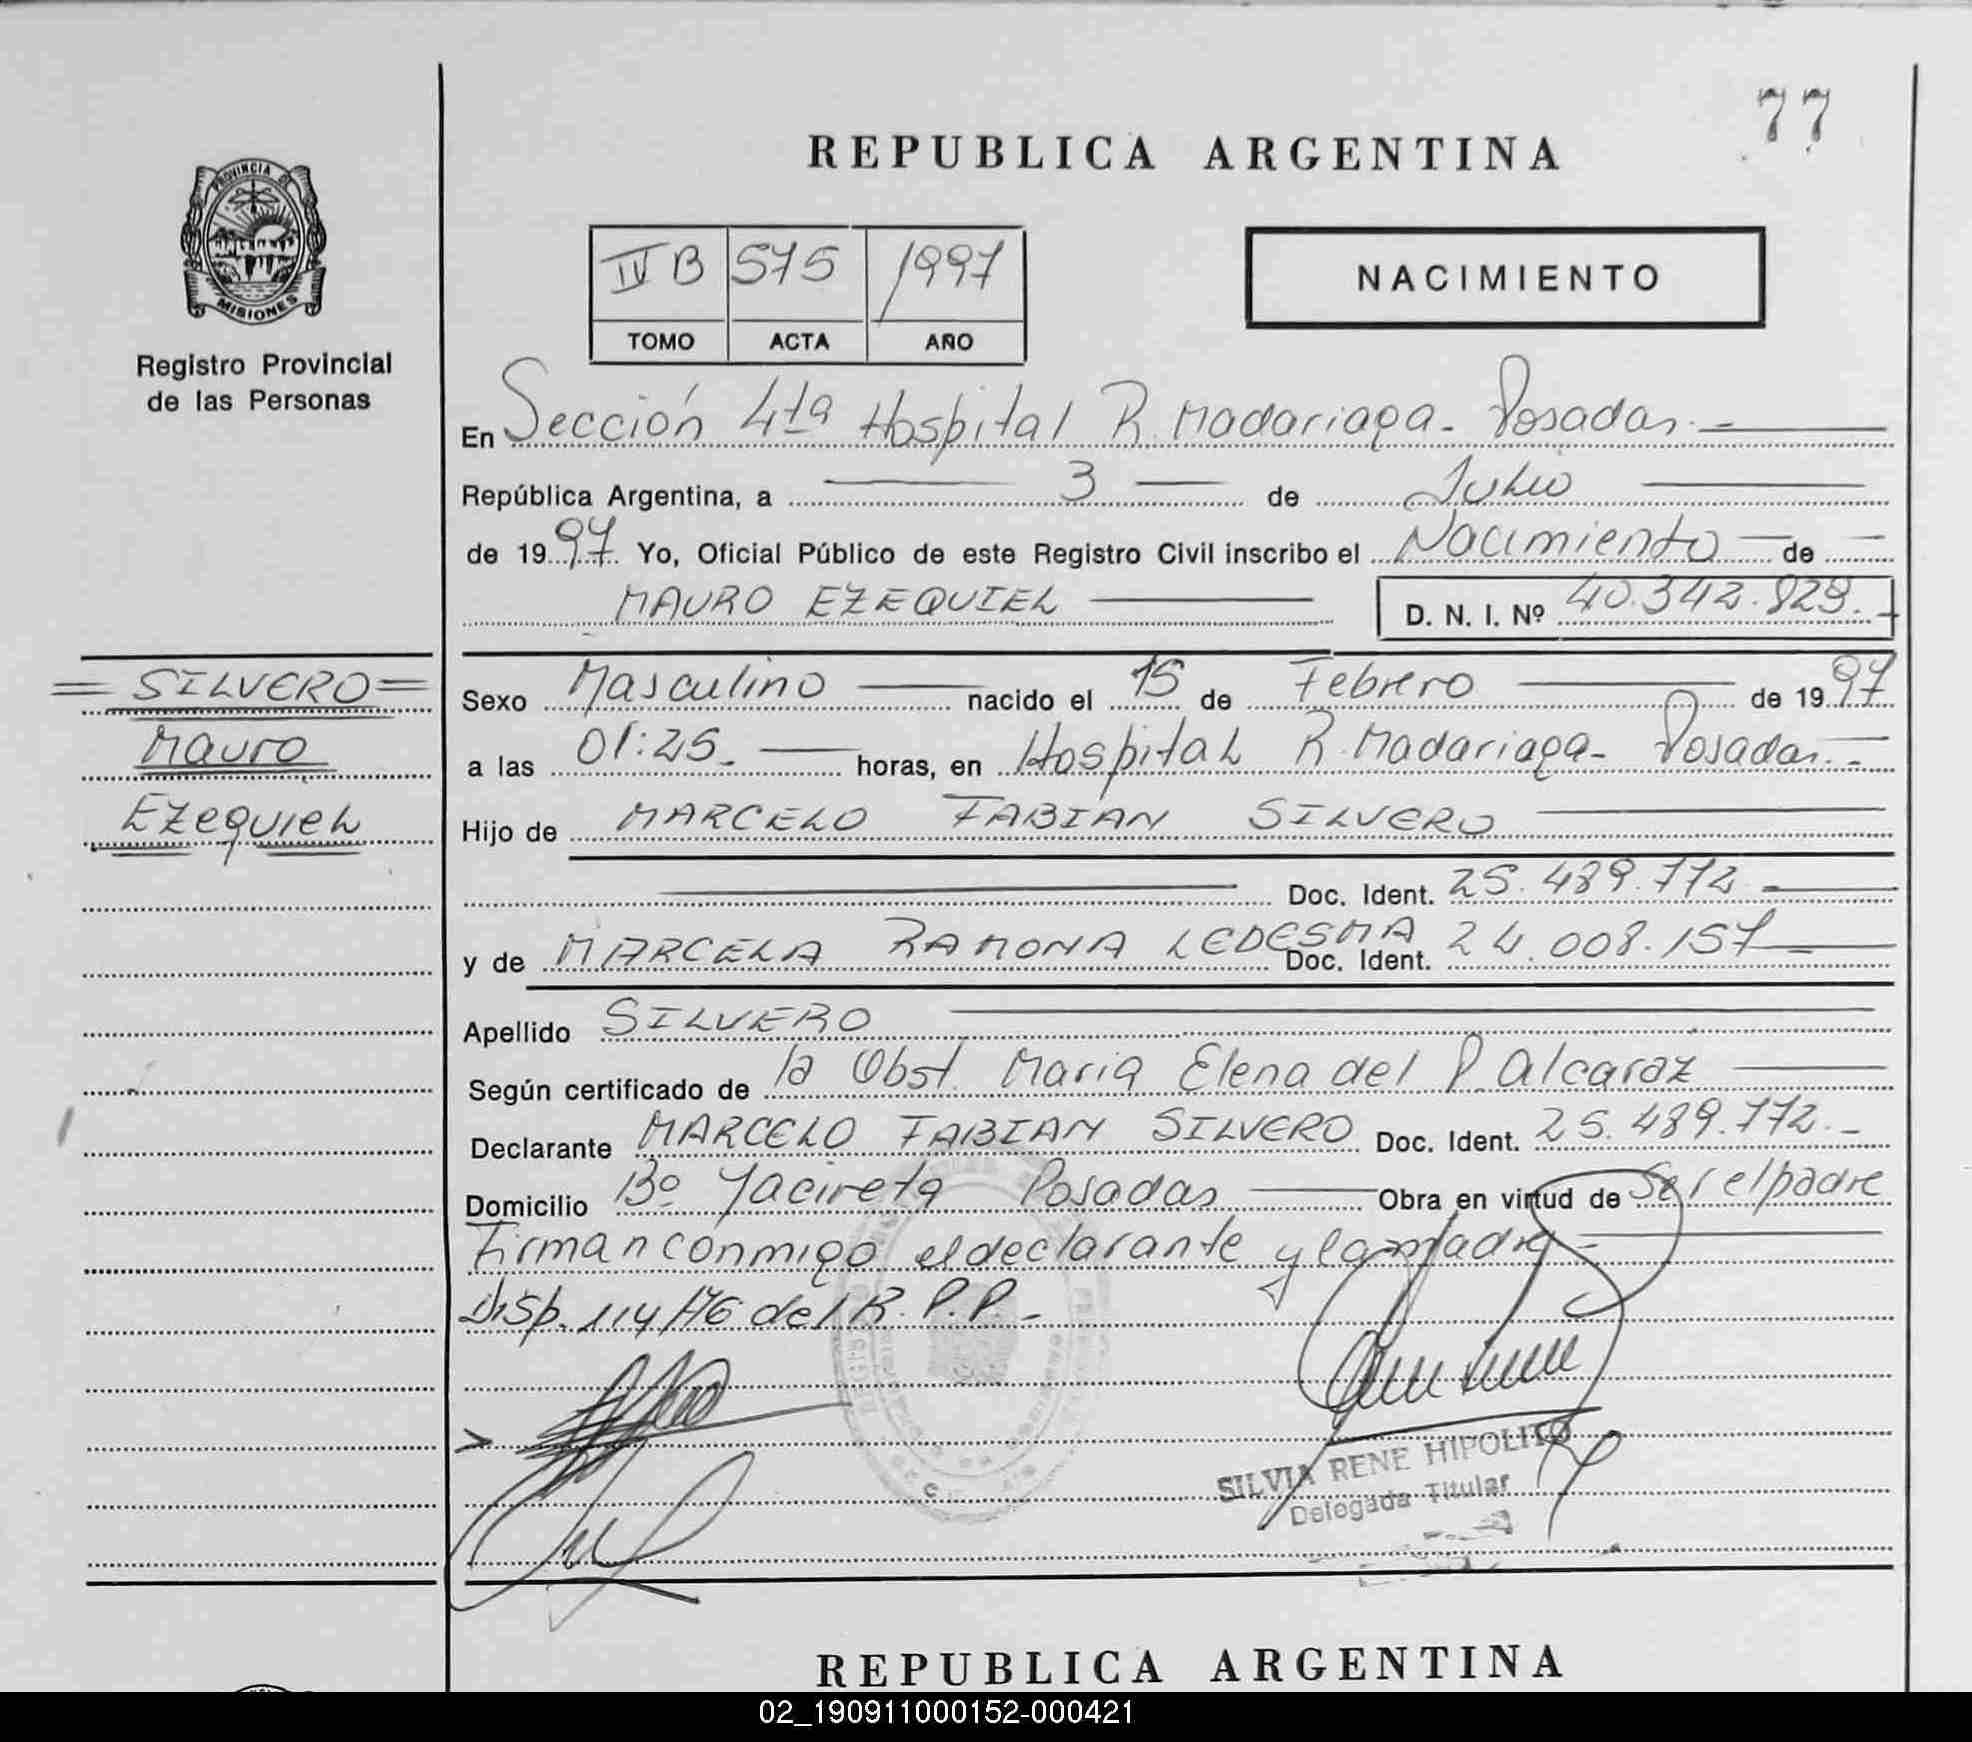 77
REPUBLICA ARGENTINA
PROVINCIA DE
MISIONES
Registro Provincial
de las Personas
IV B 575 1997
TOMO ACTA AÑO
NACIMIENTO
En Sección 4ta Hospital R. Madariaga - Posadas.-
República Argentina, a 3 de Julio
de 1997 Yo, Oficial Público de este Registro Civil inscribo el Nacimiento de
MAURO EZEQUIEL D. N. I. Nº 40.342.829.-
= SILVERO =
Mauro
Ezequiel
Sexo Masculino nacido el 15 de Febrero de 1997
a las 01:25.- horas, en Hospital R. Madariaga - Posadas.-
Hijo de MARCELO FABIAN SILVERO
Doc. Ident. 25.489.772
y de MARCELA RAMONA LEDESMA Doc. Ident. 24.008.157
Apellido SILVERO
Según certificado de la Obst. Maria Elena del P. Alcaraz
Declarante MARCELO FABIAN SILVERO Doc. Ident. 25.489.772.-
Domicilio Bº Yacireta Posadas Obra en virtud de Ser el padre
Firman conmigo el declarante y la madre -
Disp. 114/76 del R.P.P.-
SILVIA RENE HIPOLITO
Delegada Titular
REPUBLICA ARGENTINA
02_190911000152-000421